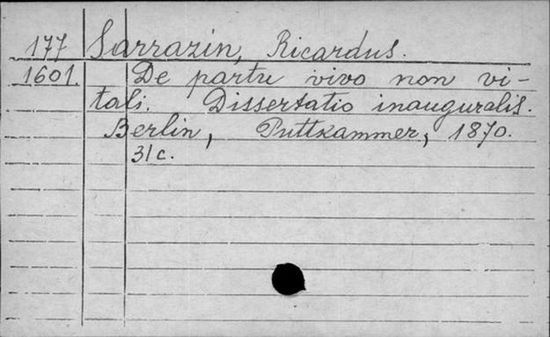 177 Sarrazin, Ricardus.
1601. De partu vivo non vi-
tali. Dissertatio inauguralis.
Berlin, Puttkammer, 1870.
31c.